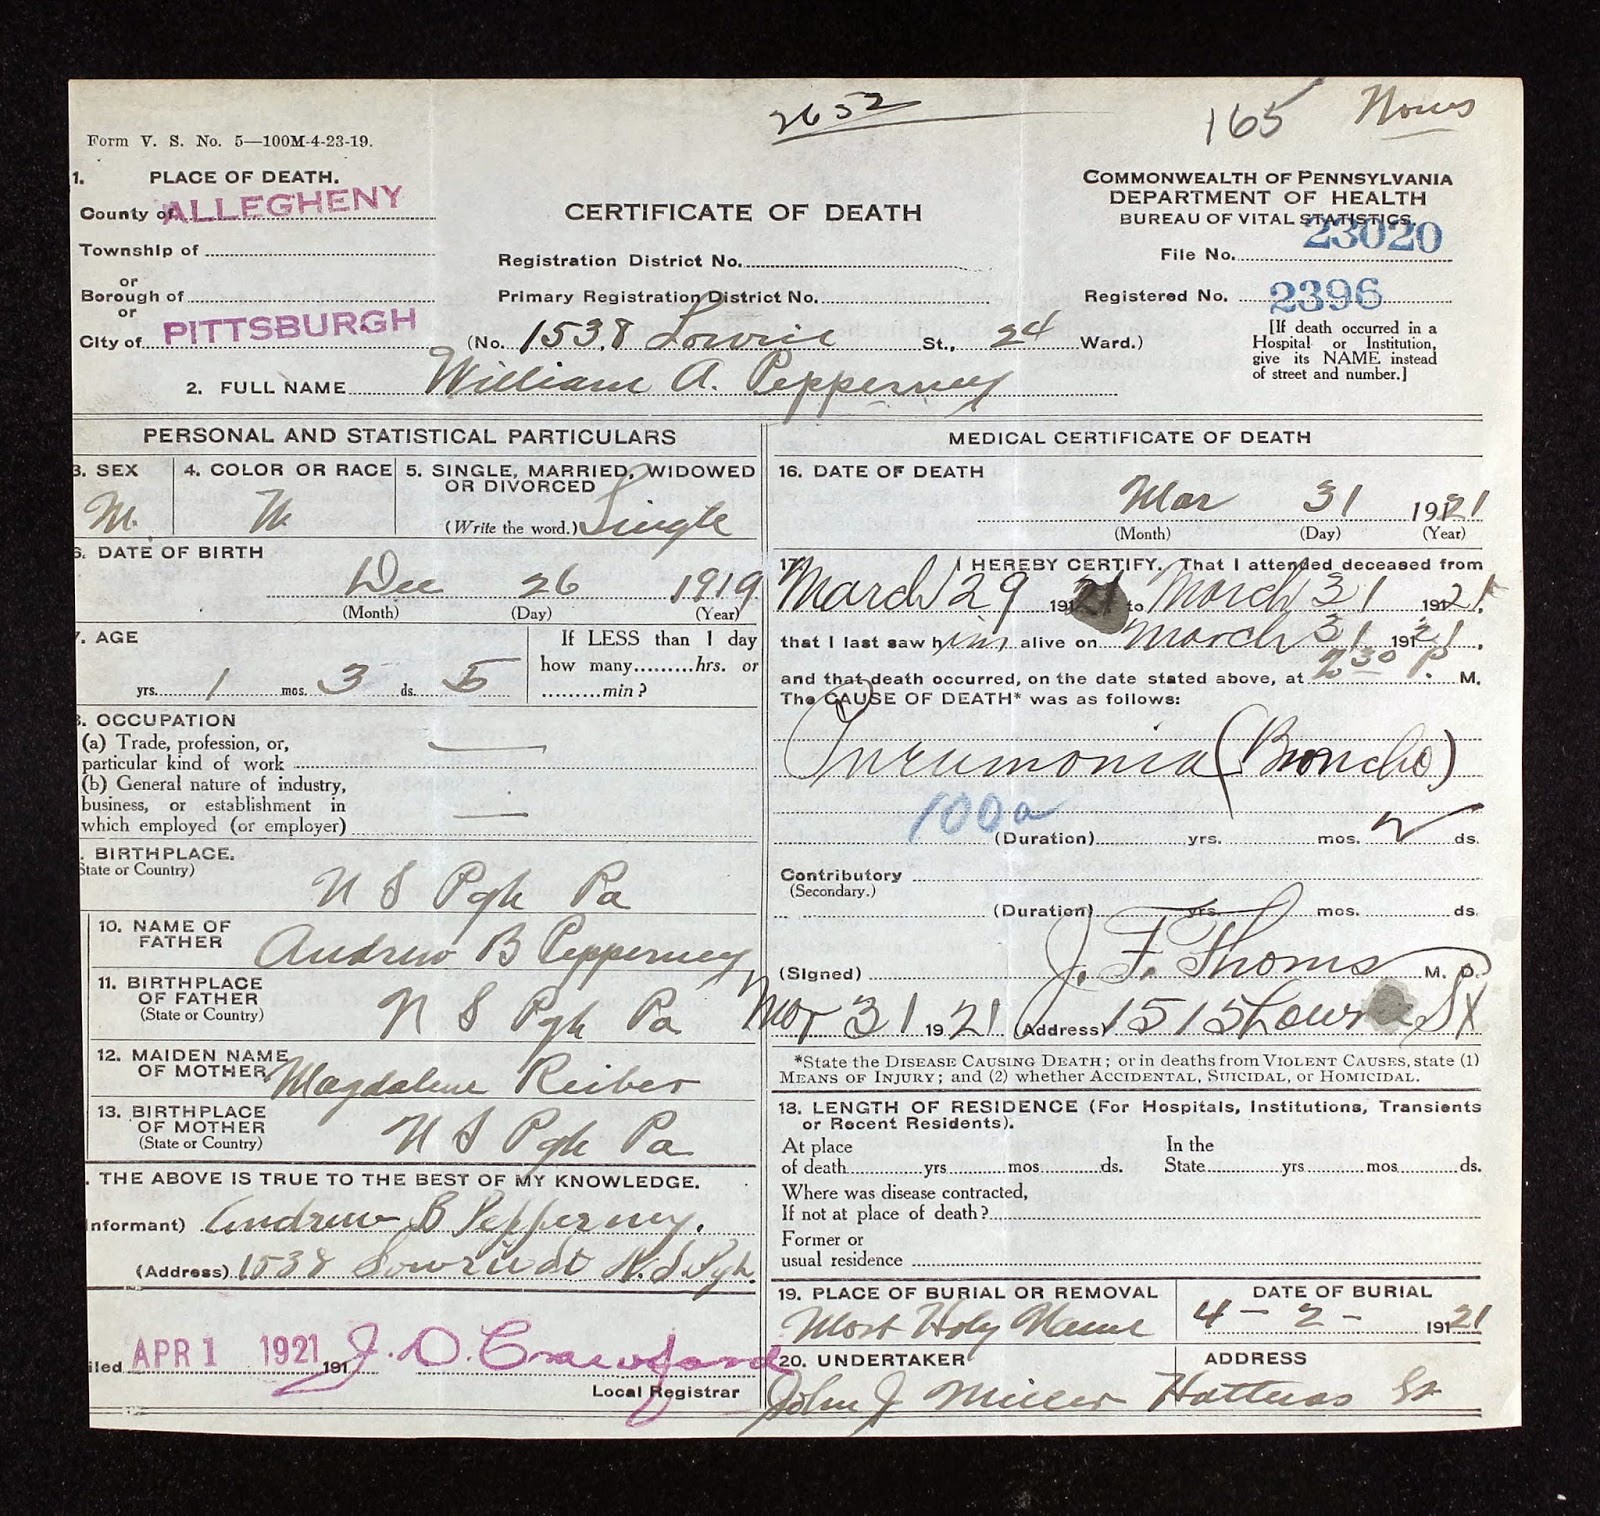 2652
165 Nows
Form V. S. No. 5—100M-4-23-19.
1. PLACE OF DEATH.
County of ALLEGHENY
Township of
or
Borough of
or
City of PITTSBURGH
CERTIFICATE OF DEATH
Registration District No.
Primary Registration District No.
(No. 1538 Lowrie St., 24 Ward.)
COMMONWEALTH OF PENNSYLVANIA
DEPARTMENT OF HEALTH
BUREAU OF VITAL STATISTICS.
File No. 23020
Registered No. 2396
[If death occurred in a
Hospital or Institution,
give its NAME instead
of street and number.]
2. FULL NAME William A. Pepperney
PERSONAL AND STATISTICAL PARTICULARS
3. SEX
M.
4. COLOR OR RACE
W.
5. SINGLE, MARRIED, WIDOWED
OR DIVORCED
(Write the word.) Single
6. DATE OF BIRTH
Dec 26 1919
(Month) (Day) (Year)
7. AGE
yrs. 1 mos. 3 ds. 5
If LESS than 1 day
how many.........hrs. or
.........min?
8. OCCUPATION
(a) Trade, profession, or,
particular kind of work —
(b) General nature of industry,
business, or establishment in
which employed (or employer) —
BIRTHPLACE.
State or Country)
N S Pgh Pa
10. NAME OF
FATHER Andrew B Pepperney
11. BIRTHPLACE
OF FATHER
(State or Country) N S Pgh Pa
12. MAIDEN NAME
OF MOTHER Magdalene Reiber
13. BIRTHPLACE
OF MOTHER
(State or Country) N S Pgh Pa
. THE ABOVE IS TRUE TO THE BEST OF MY KNOWLEDGE.
Informant) Andrew B Pepperney.
(Address) 1538 Lowrie St N.S. Pgh.
iled APR 1 1921 191 J. D. Crawford
Local Registrar
MEDICAL CERTIFICATE OF DEATH
16. DATE OF DEATH
Mar 31 1921
(Month) (Day) (Year)
17. I HEREBY CERTIFY, That I attended deceased from
March 29 1921 to March 31 1921.
that I last saw him alive on March 31 1921,
and that death occurred, on the date stated above, at 2 30 P. M.
The CAUSE OF DEATH* was as follows:
Pneumonia (Broncho)
100a
(Duration) yrs. mos. 2 ds.
Contributory
(Secondary.)
(Duration) yrs. mos. ds.
(Signed) J. F. Thoms M. D.
Mar 31 1921 (Address) 1515 Lowrie St
*State the DISEASE CAUSING DEATH; or in deaths from VIOLENT CAUSES, state (1)
MEANS OF INJURY; and (2) whether ACCIDENTAL, SUICIDAL, or HOMICIDAL.
18. LENGTH OF RESIDENCE (For Hospitals, Institutions, Transients
or Recent Residents).
At place
of death yrs mos ds.
In the
State yrs mos ds.
Where was disease contracted,
If not at place of death?
Former or
usual residence
19. PLACE OF BURIAL OR REMOVAL
Most Holy Name
DATE OF BURIAL
4 – 2 – 1921
20. UNDERTAKER
John J Miller
ADDRESS
Hatteras St